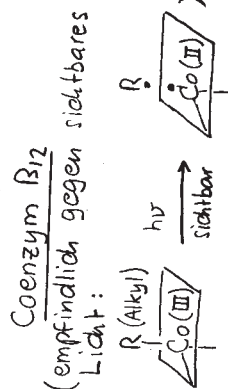 Coenzym B₁₂
(empfindlich gegen sichtbares
Licht:
R (Alkyl)
Co(III)
hν
sichtbar
R•
•Co(II)
)